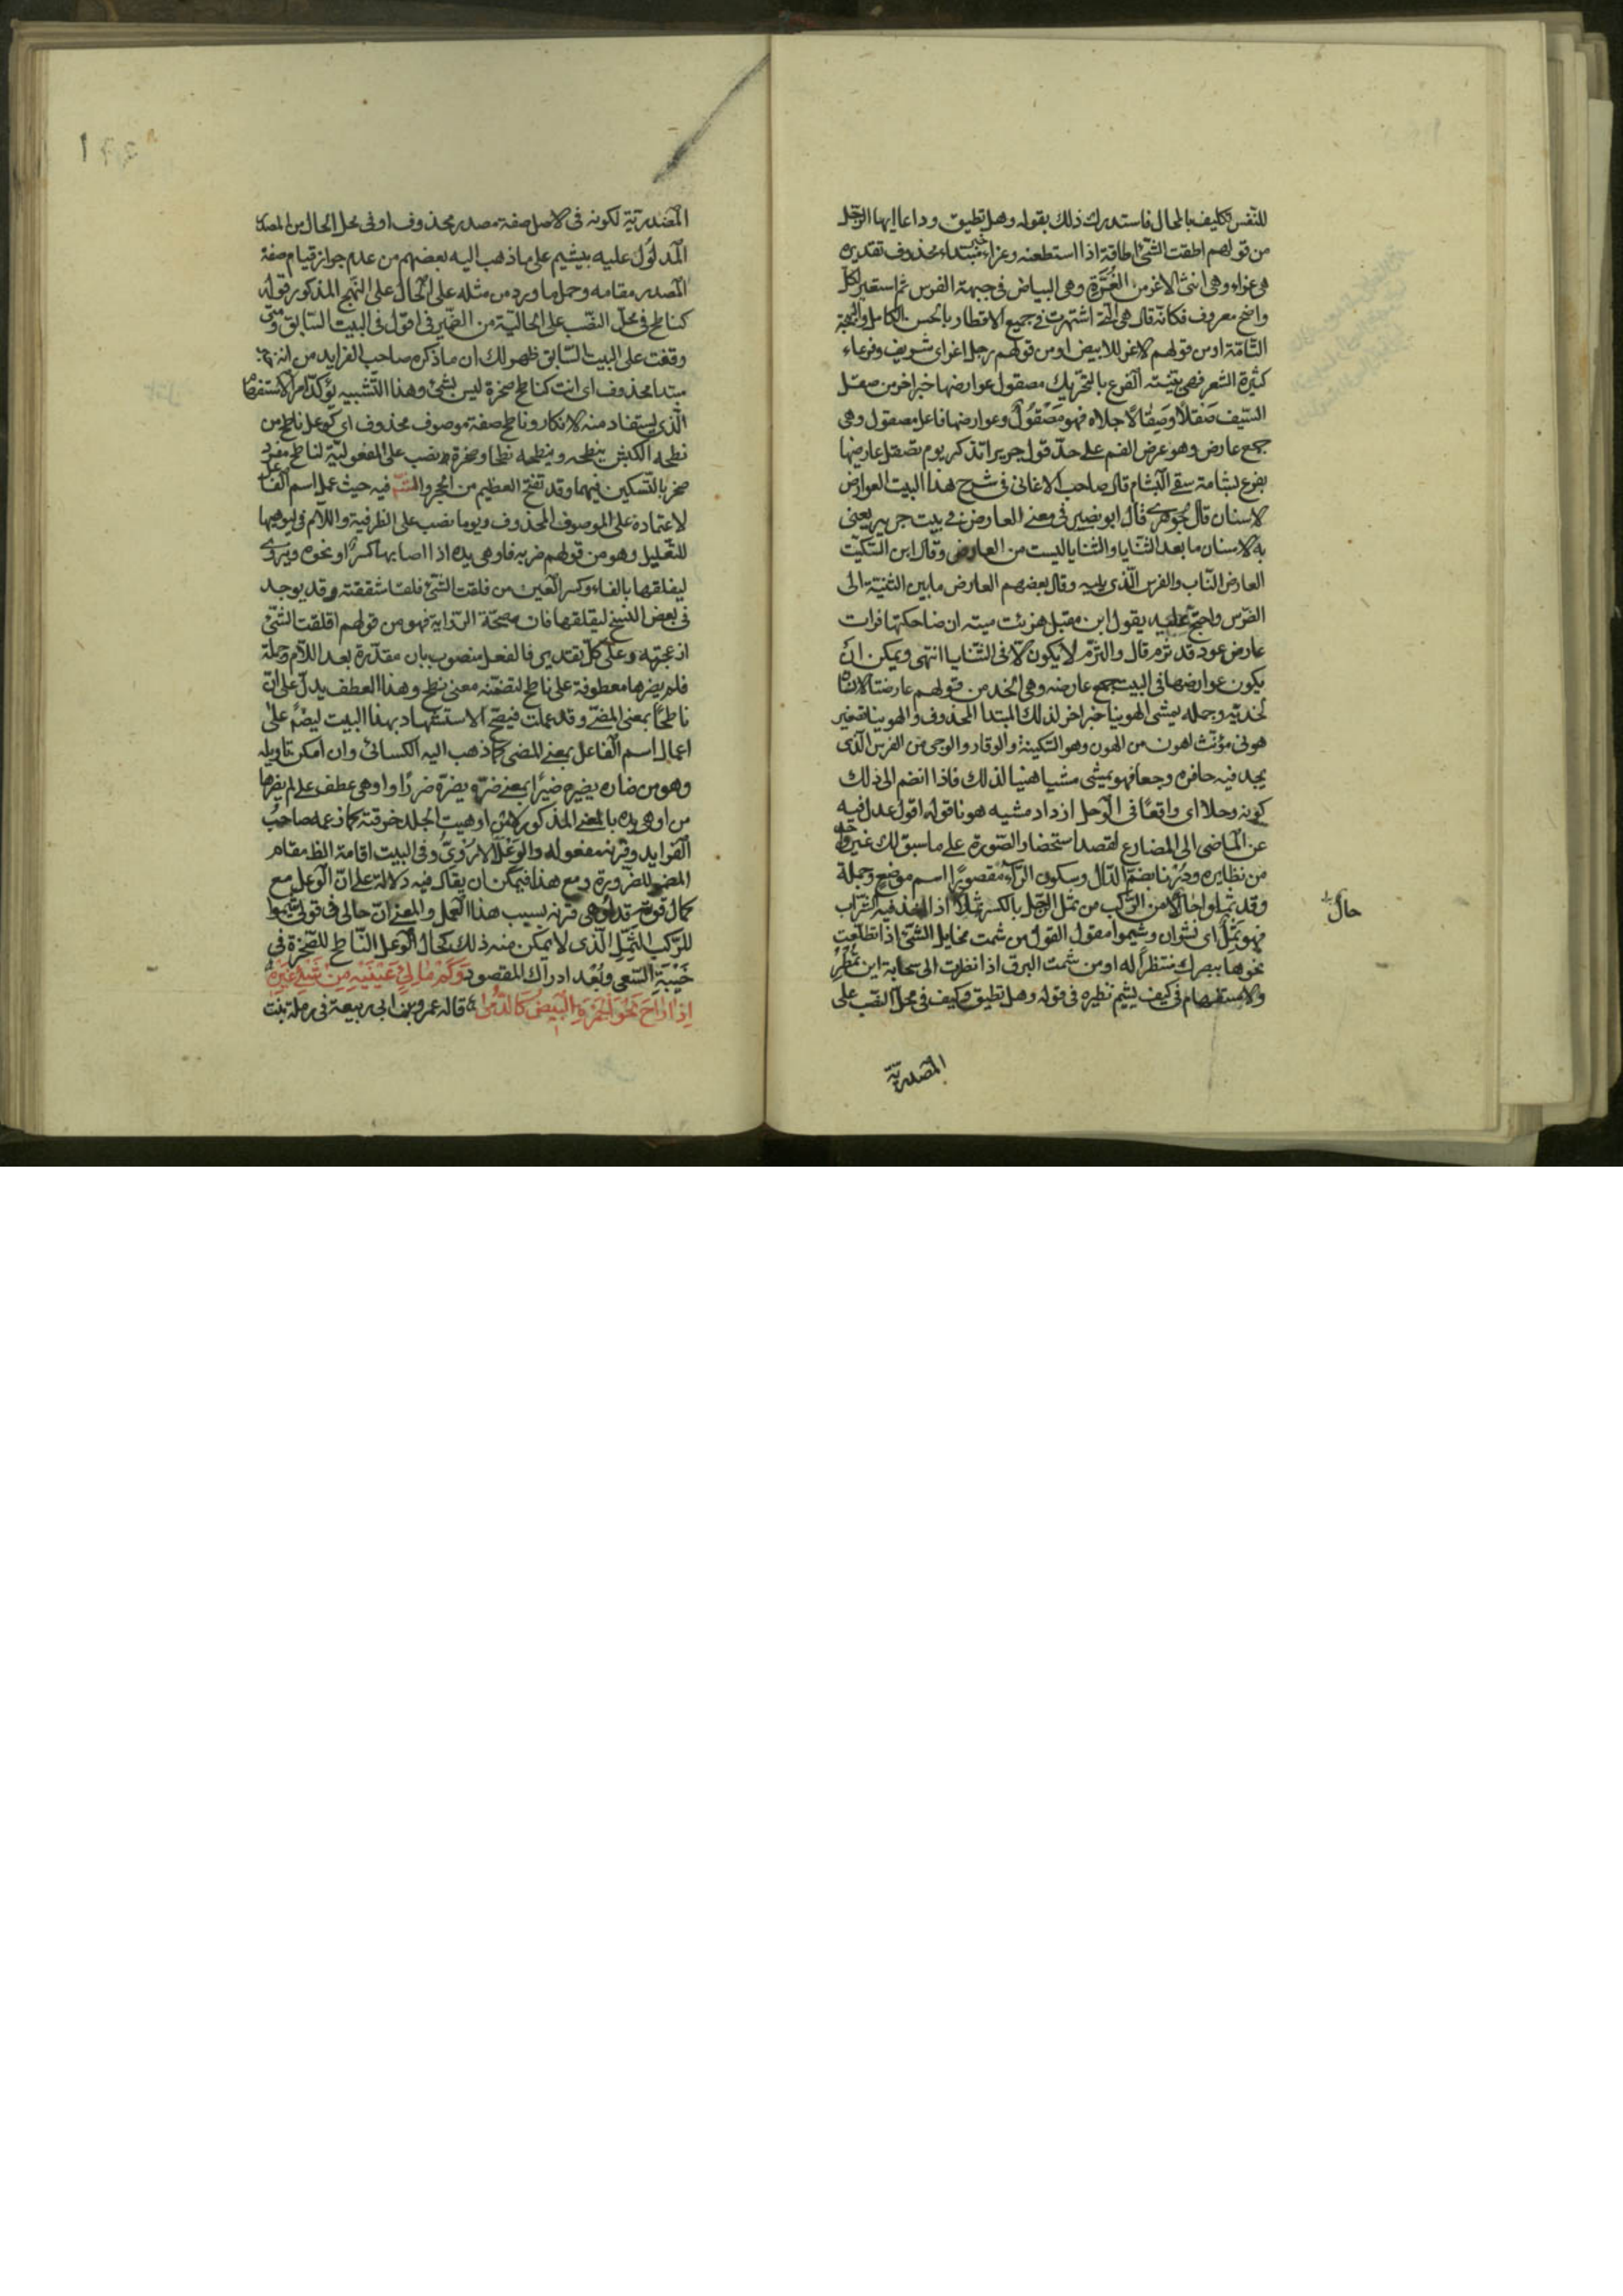 للنفس تكليف بالمحال فاستدرك ذلك بقوله وهل تطيق وداعا ايها الرجل
من قولهم اطقت الشئ اطاقة اذا استطعته وغراء خبر مبتداء محذوف تقديره
هى غراء وهى انثى الاغر من الغُرَّةِ وهى البياض فى جبهة الفرس ثم استعير لكلّ
واضح معروف فكانّه قال هى الّتى اشتهرت فى جميع الاقطار بالحسن الكامل والبهجة
التّامّة او من قولهم الاغر للابيض او من قولهم رجل اغر اى شريف وفرعاء
كثيرة الشعر فهى بيّنته الفرع بالتحريك مصقول عوارضها خبر اخر من صقل
السّيف صَقلاً وصِقالاً جلاه فهو مَصْقُولٌ وعوارضها فاعل مصقول وهى
جمع عارض وهو عرض الفم على حدّ قول جرير اتذكر يوم تصقل عارضيها
بفرع بشامة سقى البشام قال صاحب الاغانى فى شرح هذا البيت العوارض
الاسنان قال الجوهرى قال ابو نصير فى معنى العارض فى بيت جرير يعنى
به الاسنان ما بعد الثنايا والثنايا ليست من العارض وقال ابن السّكيت
العارض النّاب والضرس الّذى يليه وقال بعضهم العارض ما بين الثنيّة الى
الضّرس واحتج عليه بقول ابن مقبل هزئت ميته ان ضاحكتها فرات
عارض عود قد ثرم قال والثرم لا يكون الّا فى الثّنايا انتهى ويمكن ان
يكون عوارضها فى البيت جمع عارضة وهى الخد من قولهم عارضتا الانسان
لخديه وجملة يمشى الهوينا خبر اخر لذلك المبتدا المحذوف والهوينا تصغير
هونى مؤنّث اهون من الهون وهو السّكينة والوقار والوجى من الفرس الّذى
يجد فيه حافره وجعا فهو يمشى مشيا هنيا لذلك فاذا انضم الى ذلك
كونه وحلا اى واقعًا فى الوحل ازداد مشيه هونا قوله اقول عدل فيه
عن الماضى الى المضارع لقصد استحضار الصّورة على ما سبق لك غير
من نظايره ودُرْنا بضمّ الدّال وسكون الرّاء مقصورًا اسم موضع وجملة
وقد ثملوا حالا من الرّكب من ثمل الرّجل بالكسر ثملا اذا اخذ فيه الشّراب
فهو ثَمِلٌ اى نشوان وشيموا مقول القول من شمت مخايل الشئ اذا تطلّعت
نحوها ببصرك منتظراً له او من شمت البرق اذا نظرت الى سحابة اين تُمْطِر
والاستفهام فى كيف يشيم نظيره فى قوله وهل تطيق وكيف فى محلّ النّصب على
حال
المصدريّة
المصدريّة لكونه فى الاصل صفة مصدر محذوف او فى محل الحال من المصدر
المدلول عليه بيشيم على ما ذهب اليه بعضهم من عدم جواز قيام صفة
المصدر مقامه وحمل ما ورد من مثله على الحال على النهج المذكور قوله
كناطح فى محلّ النصب على الحاليّة من الضّمير فى اقول فى البيت السّابق ومتى
وقفت على البيت السّابق ظهر لك ان ما ذكره صاحب الفرايد من انه خبر
مبتدا محذوف اى انت كناطح صخرة ليس بشئ وهذا التّشبيه يؤكّد امر الاستفهام
الّذى يستفاد منه الانكار وناطح صفة موصوف محذوف اى كوعل ناطح من
نطحه الكبش ينطحه وينطحه نطحا وصخرة نصب على المفعوليّة لناطح مفرد
صخر بالتّسكين فيهما وقد تفتح العظيم من الحجر والشّاهد فيه حيث عمل اسم الفاعل
لاعتماده على الموصوف المحذوف ويوما نصب على الظرفية واللّام فى ليوهيها
للتّعليل وهو من قولهم ضربه فاوهى يده اذا اصابها كسر او نحوه ويروى
ليفلقها بالفاء وكسر العين من فلقت الشئ فلقا شققته وقد يوجد
فى بعض النسخ ليقلقها فان صحّة الرّواية فهو من قولهم اقلقت الشئ
ازعجته وعلى كلّ تقدير فالفعل منصوب بان مقدّرة بعد اللّام وجملة
فلم يضرها معطوفة على ناطح لتضمّنه معنى نطح وهذا العطف يدل على انّ
ناطحًا بمعنى المضى وقد عملت فيصحّ الاستشهاد بهذا البيت ايضًا على
اعمال اسم الفاعل بمعنى المضى كما ذهب اليه الكسائى وان امكن تاويله
وهو من ضاره يضيره ضيرًا بمعنى ضرّه يضرّه ضررًا واوهى عطف على لم يضرها
من اوهى يده بالمعنى المذكور او هيت الجلد خرقته كما زعمه صاحب
الفرايد وقرنه مفعوله والوَعْل الاُرْوِىّ وفى البيت اقامة الظ مقام
المضمر للضّرورة ومع هذا فيمكن ان يقال فيه دلالة على انّ الوعل مع
كمال قوته قد اوهى قرنه بسبب هذا العمل والمعنى انّ حالى فى قولى شيموا
للرّكب الثّمل الّذى لا يمكن منه ذلك كحال الوعل النّاطح للصّخرة فى
خَيْبَةِ السّعى وبُعْد ادراك المقصود وَكَمْ مَالِئٍ عَيْنَيْهِ مِنْ شَئِ غَيْرِهِ
اِذَا رَاحَ نَحْوَ الجَمْرَةِ البَيضُ كَالدُّمى قاله عمرو بن ابى ربيعة فى رملة بنت